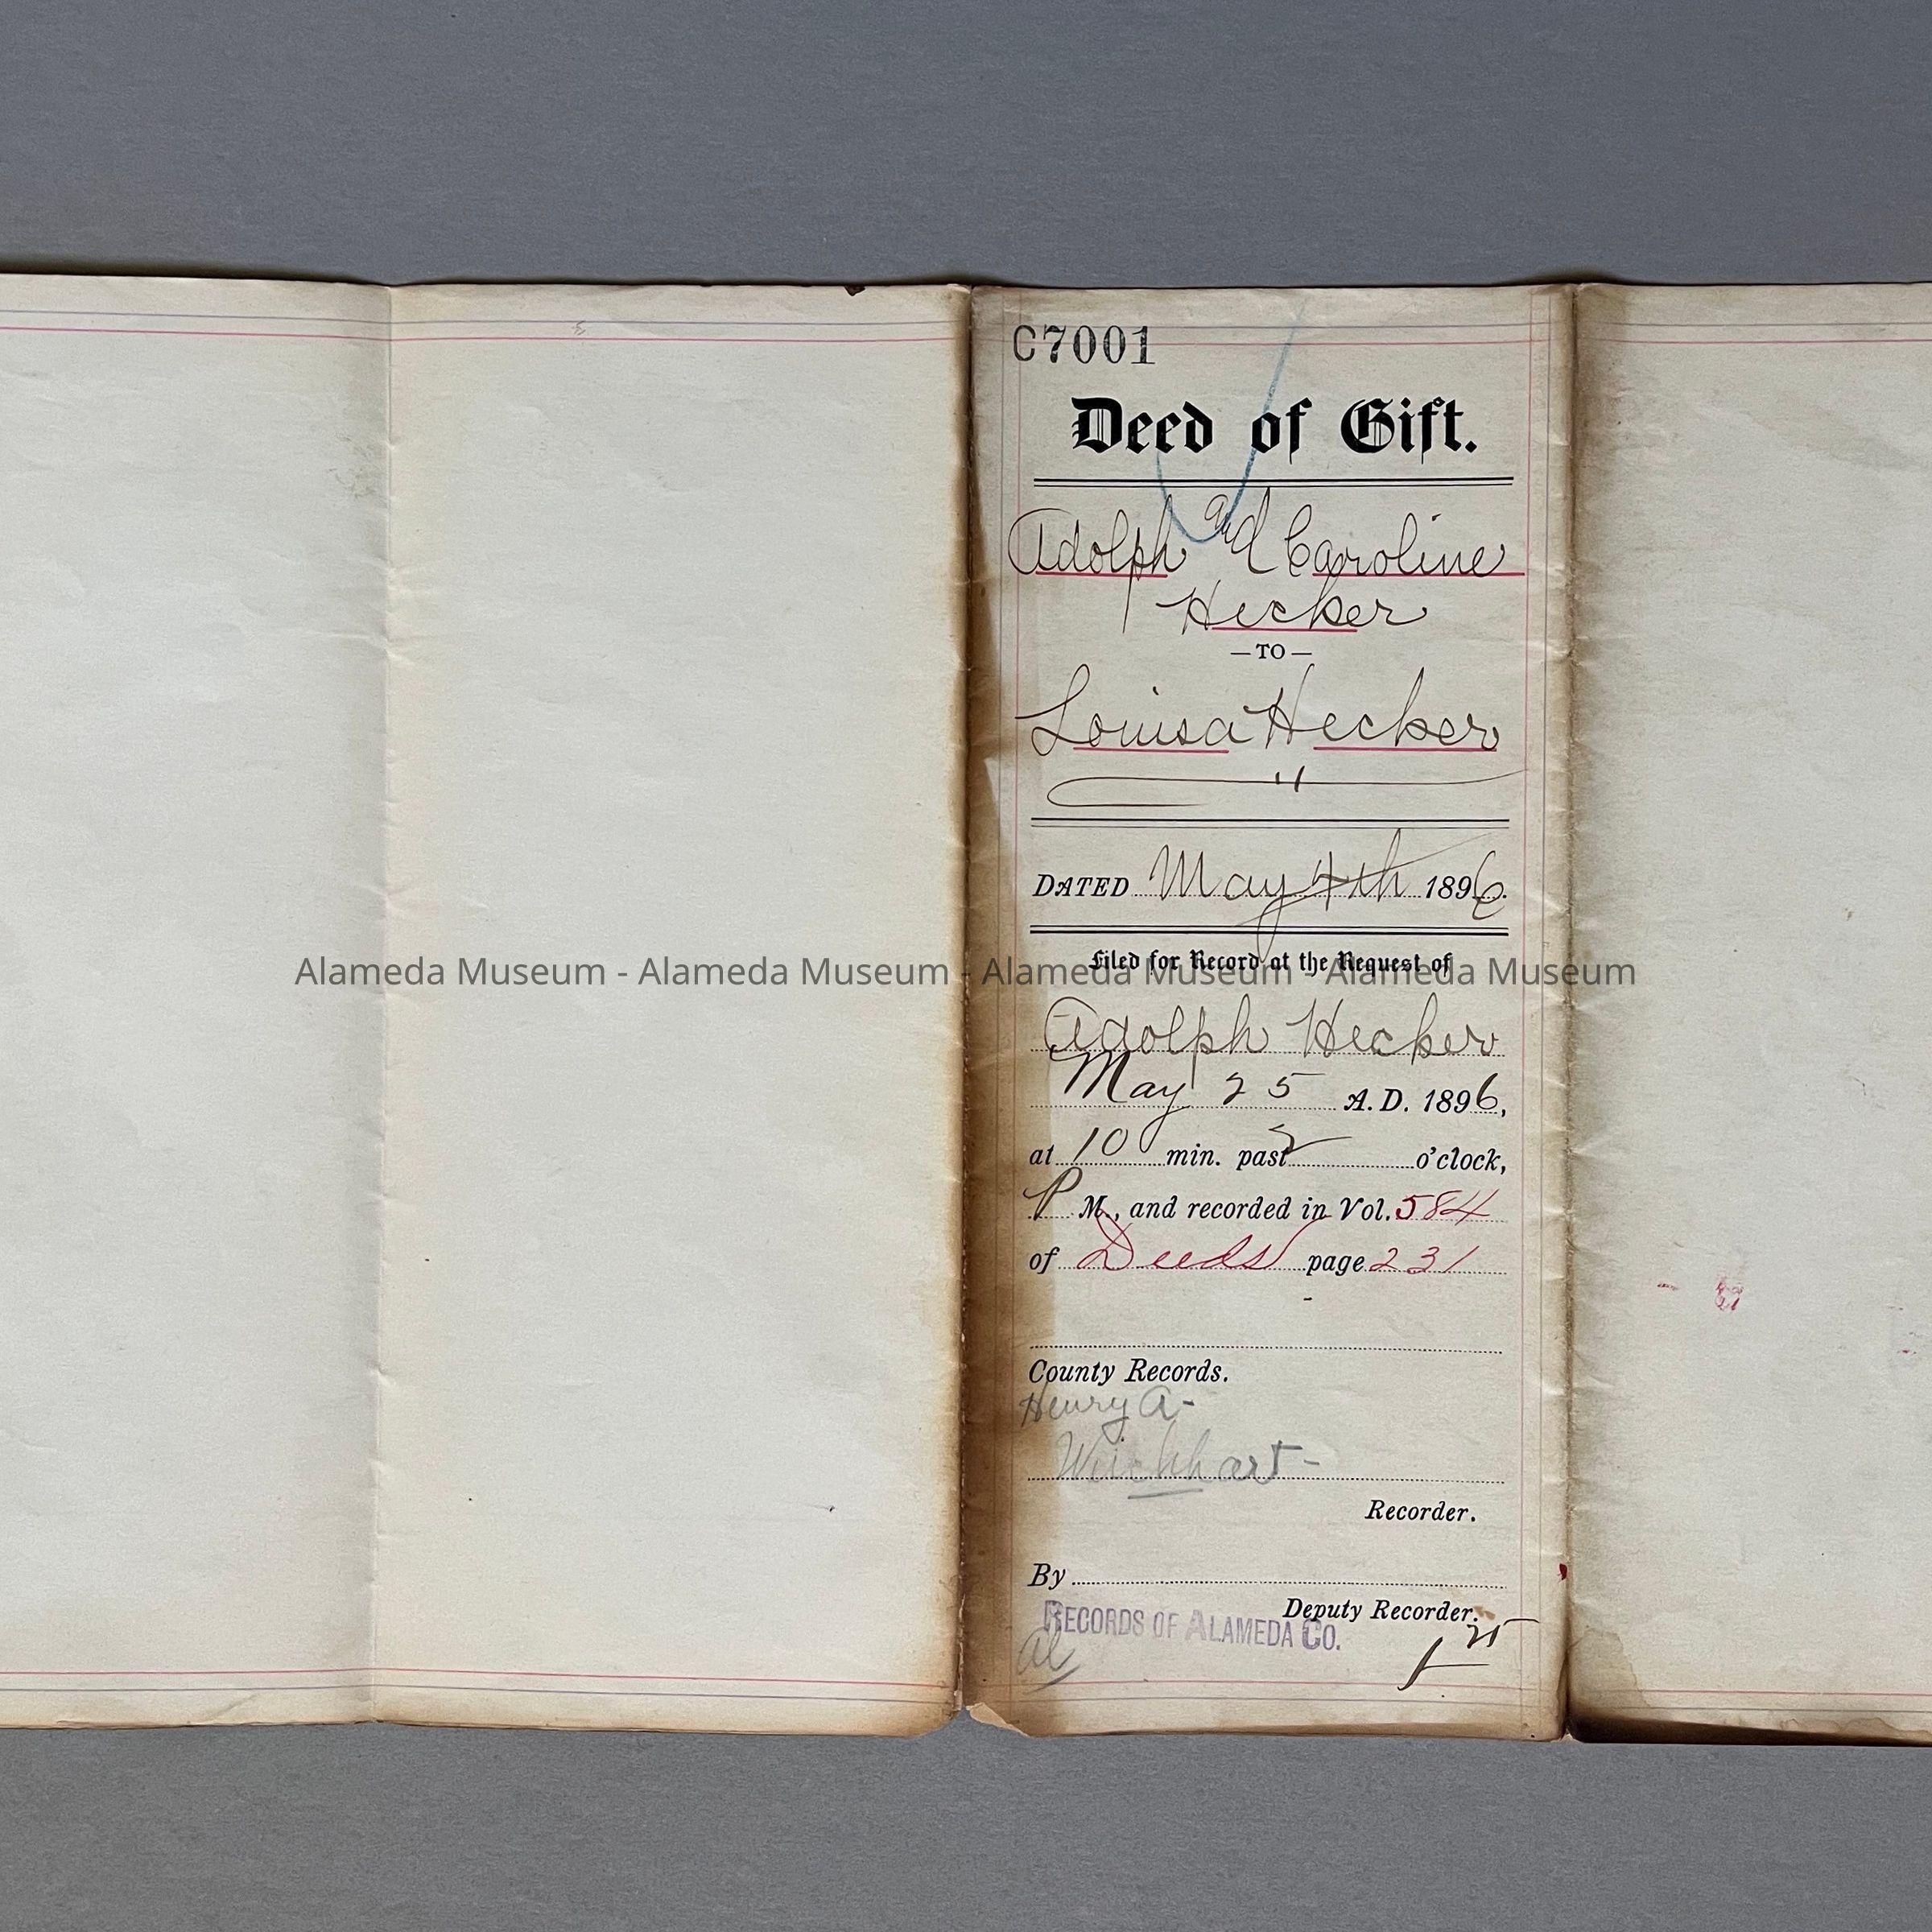 C7001
Deed of Gift.
Adolph and Caroline
Hecker
—TO—
Louisa Hecker
DATED May 4th 1896.
Filed for Record at the Request of
Alameda Museum - Alameda Museum - Alameda Museum - Alameda Museum
Adolph Hecker
May 25 A. D. 1896,
at 10 min. past 2 o'clock,
P M., and recorded in Vol. 584
of Deeds page 231
County Records.
Henry A-
Recorder.
By
Deputy Recorder.
RECORDS OF ALAMEDA CO.